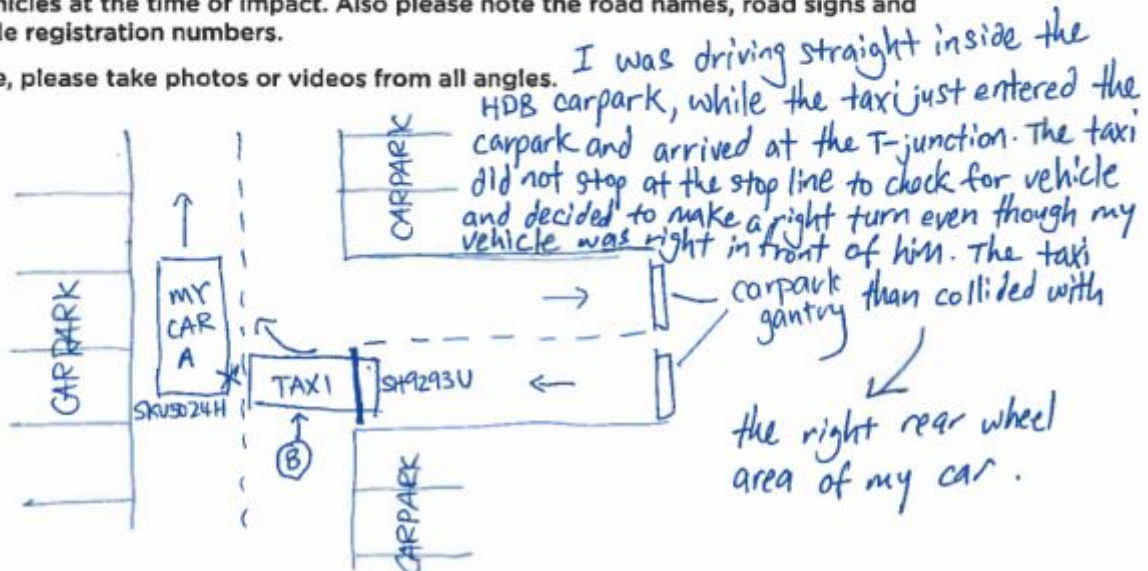 hicles at the time of impact. Also please note the road names, road signs and
le registration numbers.
e, please take photos or videos from all angles.
I was driving straight inside the
HDB carpark, while the taxi just entered the
carpark and arrived at the T-junction. The taxi
did not stop at the stop line to check for vehicle
and decided to make a right turn even though my
vehicle was right in front of him. The taxi
than collided with
the right rear wheel
area of my car.
CARPARK
CARPARK
MY
CAR
A
SKU5024H
TAXI
SH9293U
B
carpark
gantry
CARPARK